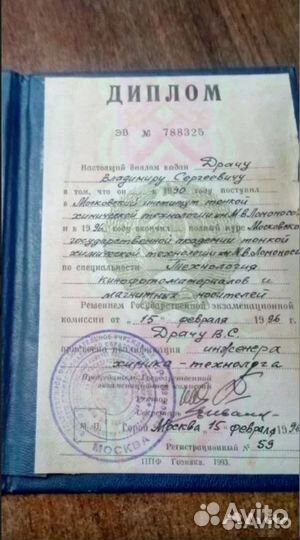 ДИПЛОМ
ЭВ № 788325
Настоящий диплом выдан Драчу
Владимиру Сергеевичу
в том, что он в 1990 году поступил
в Московский институт тонкой
химической технологии им М.В.Ломоносова
и в 1996 году окончил полный курс Московской
государственной академии тонкой
химической технологии им М.В.Ломоносова
по специальности Технология
кинофотоматериалов и
магнитных носителей
Решением Государственной экзаменационной
комиссии от "15" февраля 1996 г.
Драчу В.С.
присвоена квалификация инженера
химика-технолога
Председатель Государственной
экзаменационной комиссии
Ректор
Секретарь
М.П. Город Москва, 15 февраля 1996
Регистрационный № 59
МОСКВА
ППФ Гознака. 1993.
Avito
Avito